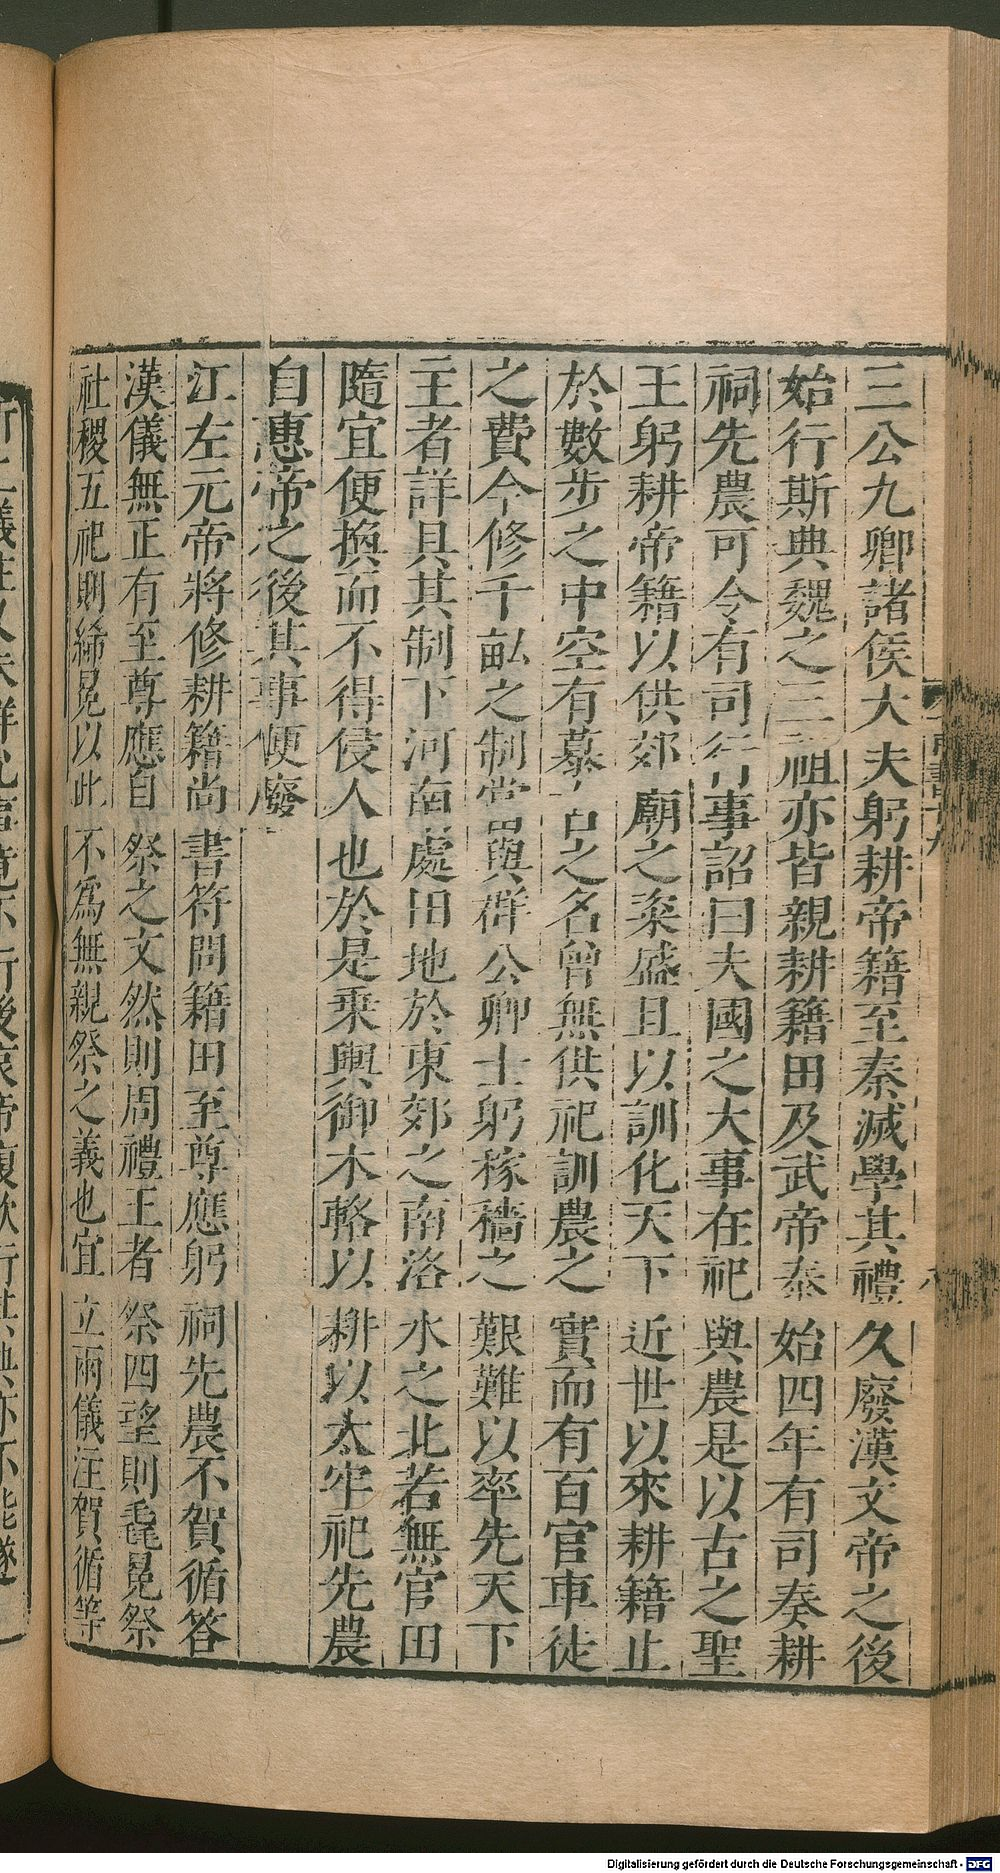 三公九卿諸侯大夫躬耕帝籍至秦滅學其禮久廢漢文帝之後
始行斯典魏之三祖亦皆親耕籍田及武帝泰始四年有司奏耕
祠先農可令有司行事詔曰夫國之大事在祀與農是以古之聖
王躬耕帝籍以供郊廟之粢盛且以訓化天下近世以來耕籍止
於數步之中空有慕古之名曾無供祀訓農之實而有百官車徒
之費今修千畝之制當與群公卿士躬稼穡之艱難以率先天下
主者詳具其制下河南處田地於東郊之南洛水之北若無官田
隨宜便換而不得侵人也於是乘輿御木輅以耕以太牢祀先農
自惠帝之後其事便廢
江左元帝將修耕籍尚書符問籍田至尊應躬祠先農不賀循答
漢儀無正有至尊應自祭之文然則周禮王者祭四望則毳冕祭
社稷五祀則絺冕以此不為無親祭之義也宜立兩儀注賀循等
所上儀注又未詳允事竟不行後哀帝復欲行其典亦不能遂
Digitalisierung gefördert durch die Deutsche Forschungsgemeinschaft - DFG